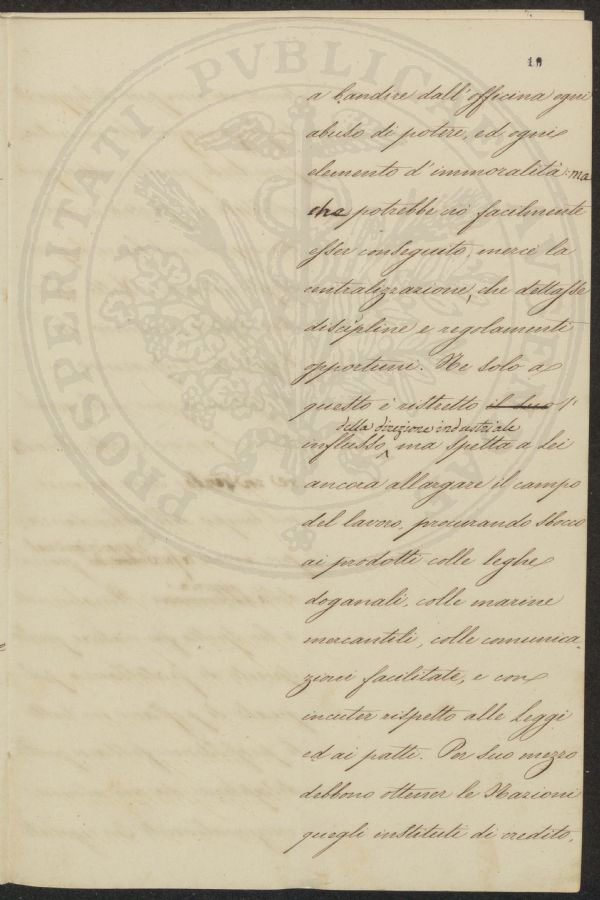 18
PROSPERITATI PVBLICAE
a bandire dall'officina ogni
abuso di potere, ed ogni
elemento d'immoralità: ma
che potrebbe ciò facilmente
esser conseguito, mercè la
centralizzazione, che dettasse
discipline e regolamenti
opportuni. Ne solo a
questo è ristretto il suo l'
della direzione industriale
influsso, ma spetta a Lei
ancora allargare il campo
del lavoro, procurando sbocco
ai prodotti colle leghe
doganali, colle marine
mercantili, colle comunica
zioni facilitate, e con
incuter rispetto alle Leggi
ed ai patti. Per suo mezzo
debbono ottener le Nazioni
quegli instituti di credito,